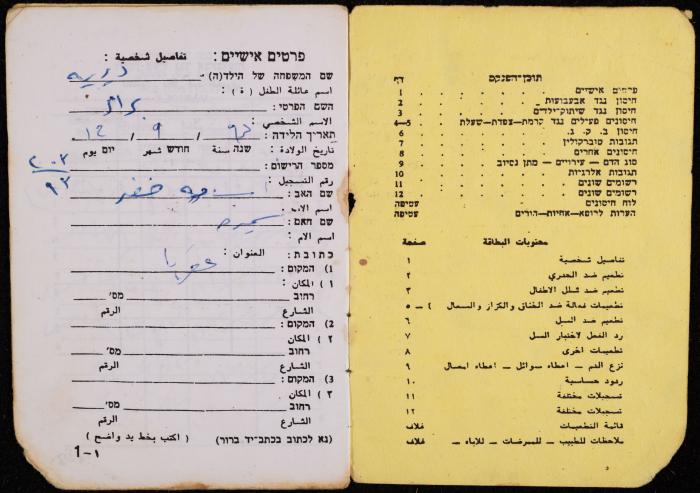 תוכן-הפנקס דף
פרטים אישיים 1
חיסון נגד אבעבועות 2
חיסון נגד שיתוק-ילדים 3
חיסונים פעילים נגד קרמת—צפדת—שעלת 4—5
חיסון ב. ק. ג. 6
תגובות טוברקולין 7
חיסונים אחרים 8
סוג הדם — עירויים — מתן נסיוב 9
תגובות אלרגיות 10
רשומים שונים 11
רשומים שונים 12
לוח חיסונים עטיפה
הערות לרופא—אחיות—הורים עטיפה
محتويات البطاقة صفحة
تفاصيل شخصية ١
تطعيم ضد الجدري ٢
تطعيم ضد شلل الاطفال ٣
تطعيمات فعالة ضد الخناق والكزاز والسعال ٤ — ٥
تطعيم ضد السل ٦
رد الفعل لاختبار السل ٧
تطعيمات اخرى ٨
نزع الدم — اعطاء سوائل — اعطاء امصال ٩
ردود حساسية ١٠
تسجيلات مختلفة ١١
تسجيلات مختلفة ١٢
قائمة التطعيمات غلاف
ملاحظات للطبيب — للممرضات — للاباء — غلاف
פרטים אישיים: تفاصيل شخصية:
שם המשפחה של הילד(ה)
اسم عائلة الطفل (ة):
השם הפרטי:
الاسم الشخصي:
תאריך הלידה: / 9 / 12
تاريخ الولادة: שנה سنة חודש شهر יום يوم
מספר הרישום:
رقم التسجيل:
שם האב:
اسم الاب:
שם האם: سميره
اسم الام:
כתובת: العنوان:
1) המקום:
١) المكان:
רחוב מס׳
الشارع الرقم
2) המקום:
٢) المكان
רחוב מס׳
الشارع الرقم
3) המקום:
٣) المكان
רחוב מס׳
الشارع الرقم
(נא לכתוב בכתב-יד ברור) (اكتب بخط يد واضح)
1-١